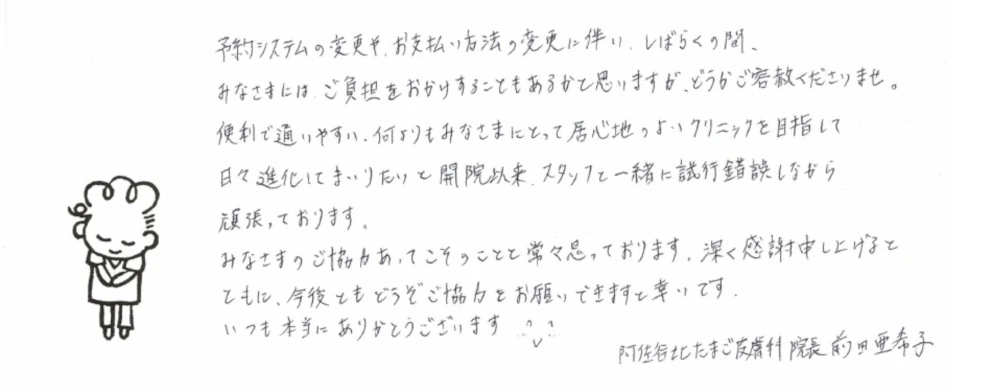 予約システムの変更や、お支払い方法の変更に伴い、しばらくの間、
みなさまには、ご負担をおかけすることもあるかと思いますが、どうかご容赦くださいませ。
便利で通いやすい、何よりもみなさまにとって居心地のよいクリニックを目指して
日々進化してまいりたいと開院以来、スタッフと一緒に試行錯誤しながら
頑張っております。
みなさまのご協力あってこそのことと常々思っております。深く感謝申し上げると
ともに、今後ともどうぞご協力をお願いできますと幸いです。
いつも本当にありがとうございます
阿佐谷北たまご皮膚科 院長 前田亜希子